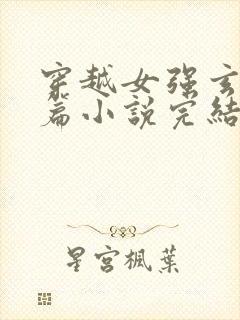 穿越女强玄
篇小說完結
星宮楓葉